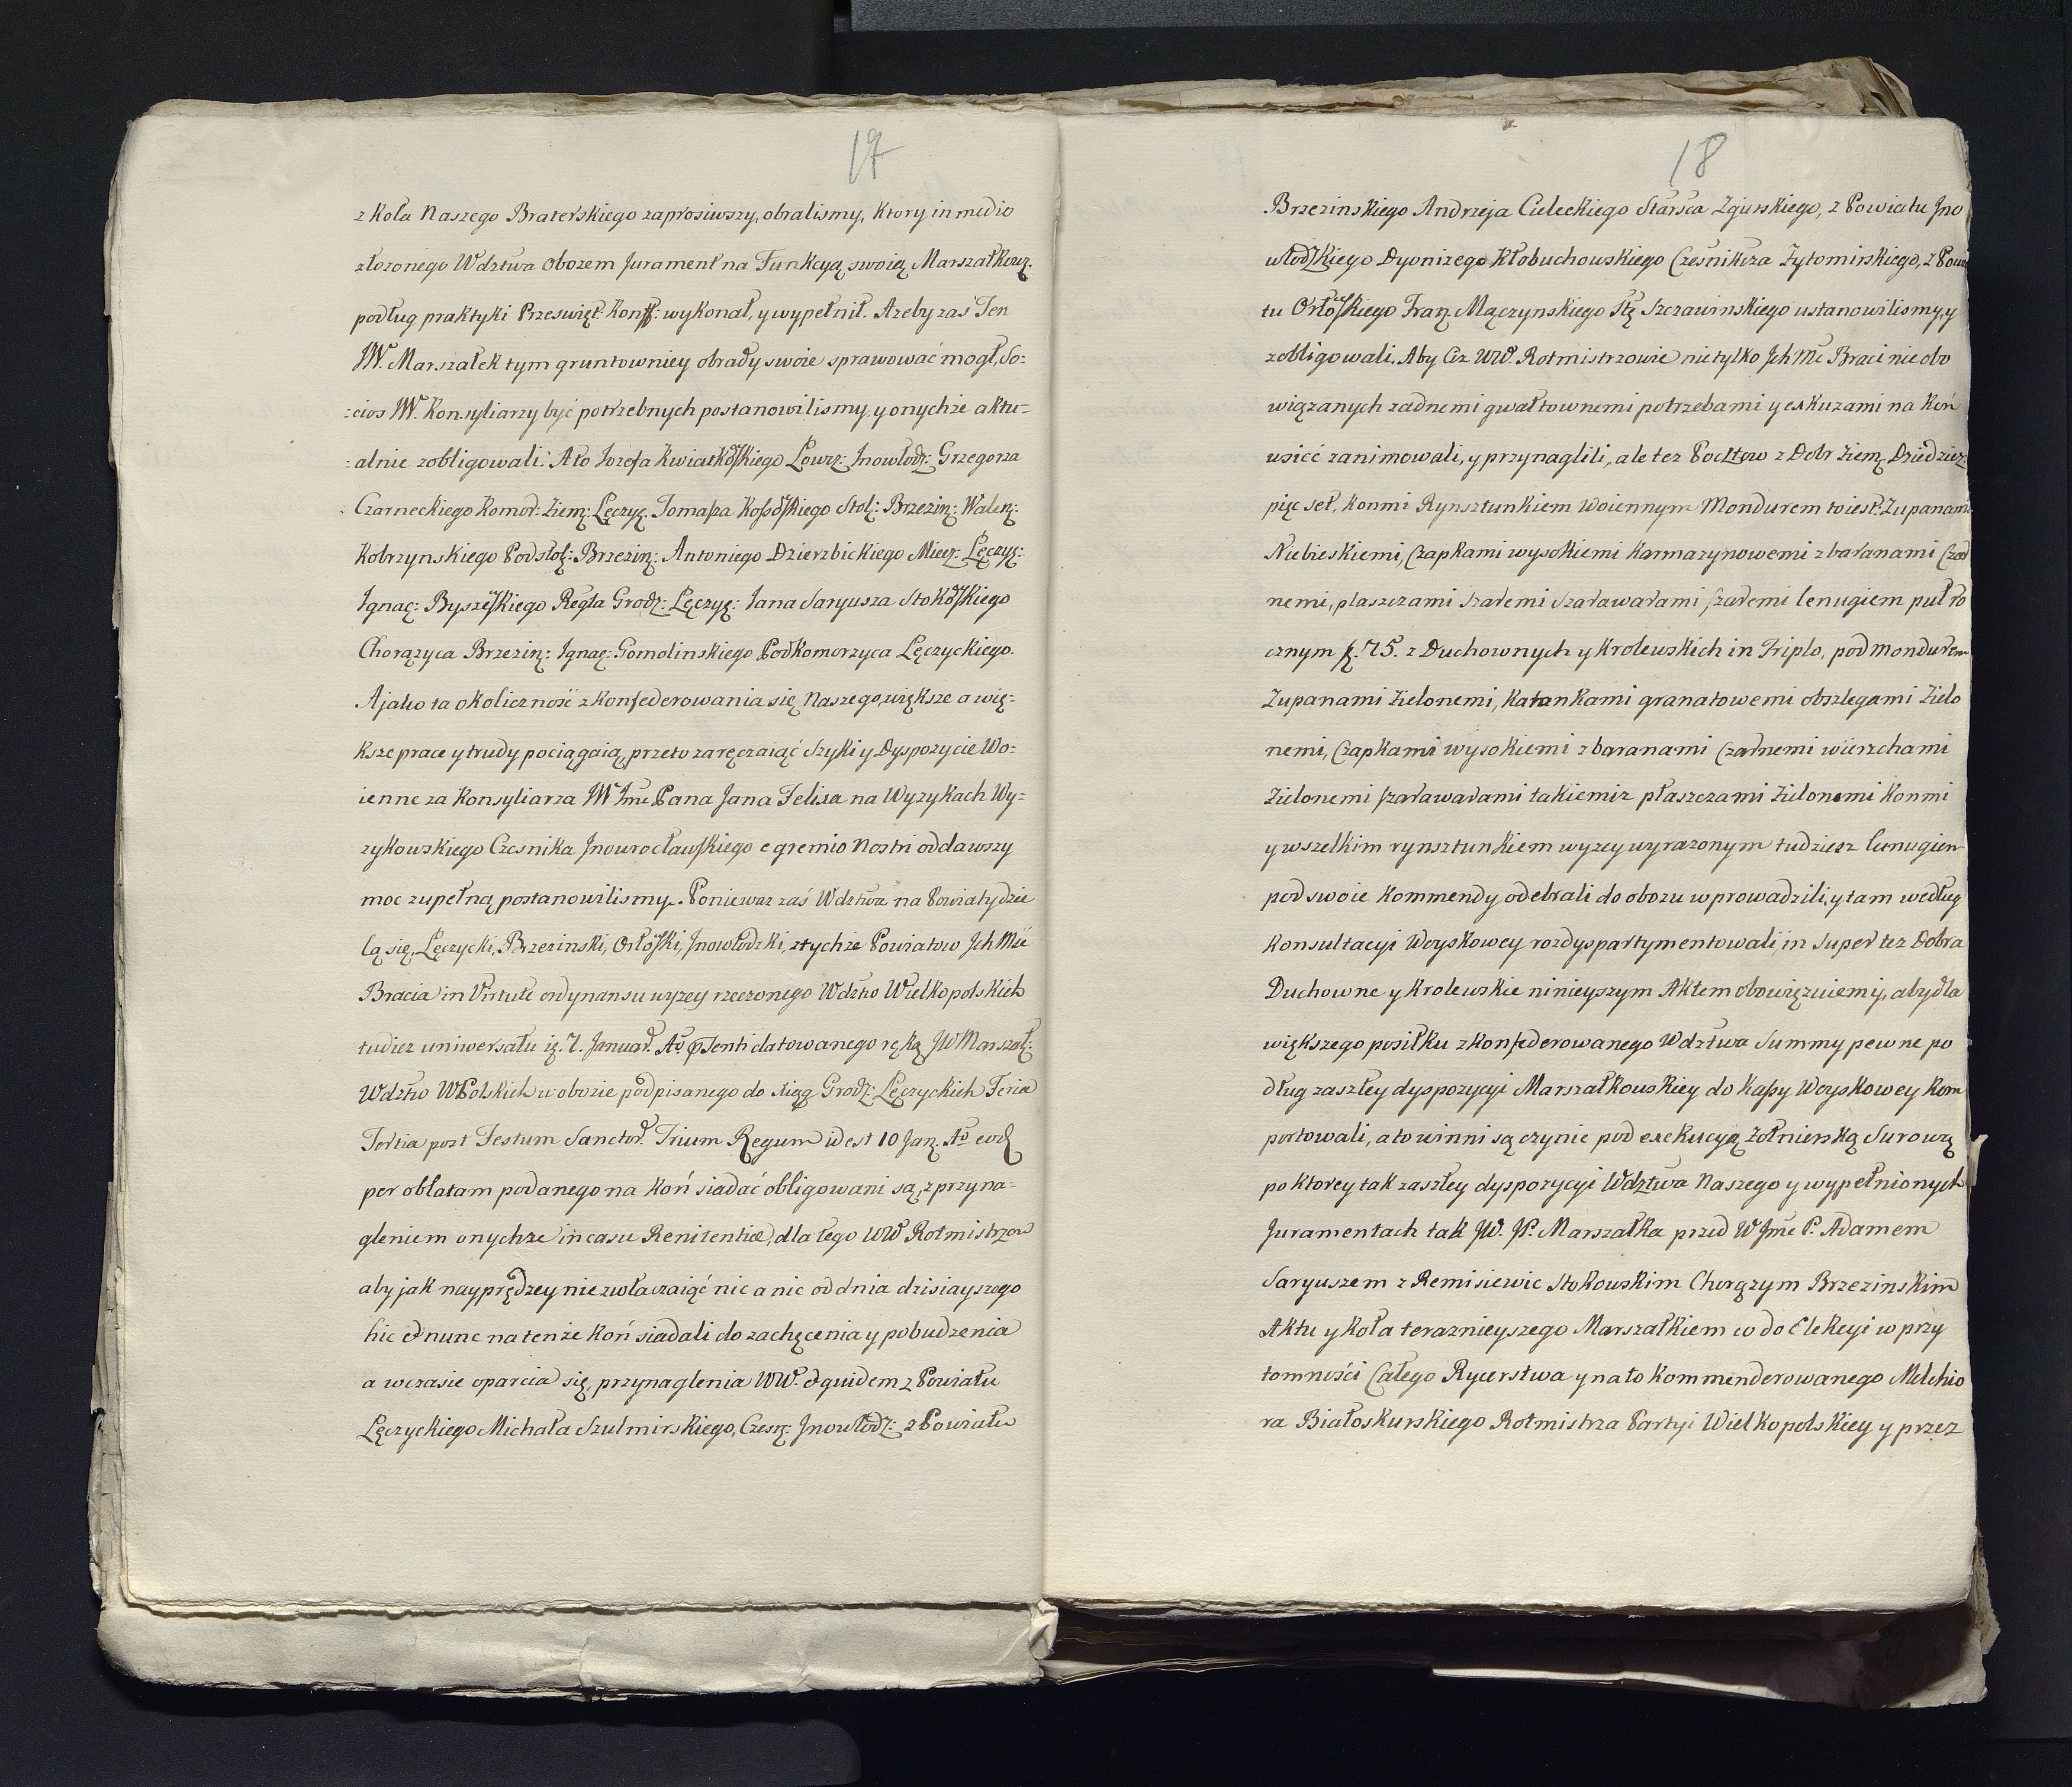 17
z Koła Naszego Braterskiego zaprosiwszy, obralismy, Ktory in medio
złozonego Wdztwa Obozem Jurament na Funkcyą swoię Marszałkows:
podług praktyki Przeswięt: Konff: wykonał, y wypełnił. Azeby zaś Ten
JW. Marszałek tym gruntowniey obrady swoie sprawować mogł, So=
=cios JW. Konsyliarzy być potrzebnych postanowilismy, y onychże aktu=
=alnie zobligowali: A to Jozefa Kwiatkoskiego Łowcz: Jnowłodz: Grzegorza
Czarneckiego Komor: Ziem: Łęczyc: Tomasza Kossoskiego Stol: Brzezin: Walen:
Kobrzynskiego Podstol: Brzezin: Antoniego Dzierzbickiego Miecz: Łęczyc:
Ignac: Byszeskiego Regta Grodz: Łęczyc: Jana Saryusza Stokoskiego
Chorązyca Brzezin: Ignac: Gomolinskiego Podkomorzyca Łęczyckiego.
A jako ta okoliczność zkonfederowania się Naszego, większe a wię=
ksze prace y trudy pociągaią, przeto zaręczaiąć Szyki y Dyspozycie Wo=
ienne za Konsyliarza JW Jmć Pana Jana Felixa na Wyzykach Wy=
zykowskiego Czesnika Jnowrocławskiego e gremio Nostri oddawszy
moc zupełną postanowilismy. Poniewaz zaś Wdztwa na Powiaty dzie
lą się, Łęczycki, Brzezinski, Orłoski, Jnowłodzki, z tychże Powiatow Jch Mć
Bracia in Virtute ordynansu wyzey rzeczonego Wdztwo Wielkopolskich
tudiez uniwersału ig. 7. Januar. Ao. pst̃enti datowanego ręką JW Marszał:
Wdztwo WPolskich w obozie podpisanego do Xiąg Grodz: Łęczyckich Feria
Tertia post Festum Sanctor. Trium Regum id est 10 Jan. Ao eod
per oblatam podanego na Koń siadać obligowani są, z przyna=
gleniem onychże in casu Renitentiæ, dla tego WW Rotmistrzow
aby jak nayprędzey niezwłaczaiąć nic a nic od dnia dzisiayszego
hic & nunc na tenże Koń siadali do zachęcenia y pobudzenia
a w czasie oparcia się, przynaglenia WW. & quidem z Powiatu
Łęczyckiego Michała Szulmirskiego, Czesn: Jnowłodz: z Powiatu
18
Brzezinskiego Andrzeja Cieleckiego Starsca Zgurskiego, z Powiatu Jno
włodzkiego Dyonizego Kłobuchowskiego Czesnikcza Zytomirskiego, z Powia
tu Orłoskiego Fran: Mączynskiego Stę Szczawinskiego ustanowilismy, y
zobligowali. Aby Ciz WW. Rotmistrzowie nietylko Jch Mć Braci nie obo
wiązanych zadnemi gwałtownemi potrzebami y exkuzami na Koń
usieść zanimowali, y przynaglili, ale tez Pocztow z Dobr Ziem: Dziedzicz:
pięc set, Konmi Rynsztunkiem Woiennym Mondurem toiest: Zupanami
Niebieskiemi, Czapkami wysokiemi Karmazynowemi z baranami Czar
nemi, płaszczami Szaremi Szarawarami szaremi lenugiem puł ro
cznym f. 75. z Duchownych y Krolewskich in Triplo, pod mondurem
Zupanami Zielonemi, Katankami granatowemi obszlegami Zielo
nemi, Czapkami wysokiemi z baranami Czarnemi wierzchami
Zielonemi szarawarami takiemiz płaszczami Zielonemi Konmi
y wszelkim rynsztunkiem wyzey wyrazonym tudziesz lenugiem
pod swoie Kommendy odebrali do obozu wprowadzili, y tam według
Konsultacyi Woyskowey rozdyspartymentowali, in Super tez Dobra
Duchowne y Krolewskie ninieyszym Aktem obowięzuiemy, aby dla
większego posiłku zkonfederowanego Wdztwa Summy pewne po
dług zaszłey dyspozycyi Marszałkowskiey do Kassy Woyskowey Kom
portowali, a to winni są czynic pod exekucyą Zołnierską Surową
po ktorey tak zaszłey dyspozycyi Wdztwa Naszego y wypełnionych
Juramentach tak JW. JP. Marszałka przed W Jmć P. Adamem
Saryuszem z Remisiewic Stokowskim Chorązym Brzezinskim
Aktu y Koła teraznieyszego Marszałkiem co do Elekcyi w przy
tomności Całego Rycerstwa y na to Kommenderowanego Melchio
ra Białoskurskiego Rotmistrza Partyi Wielkopolskiey y przez